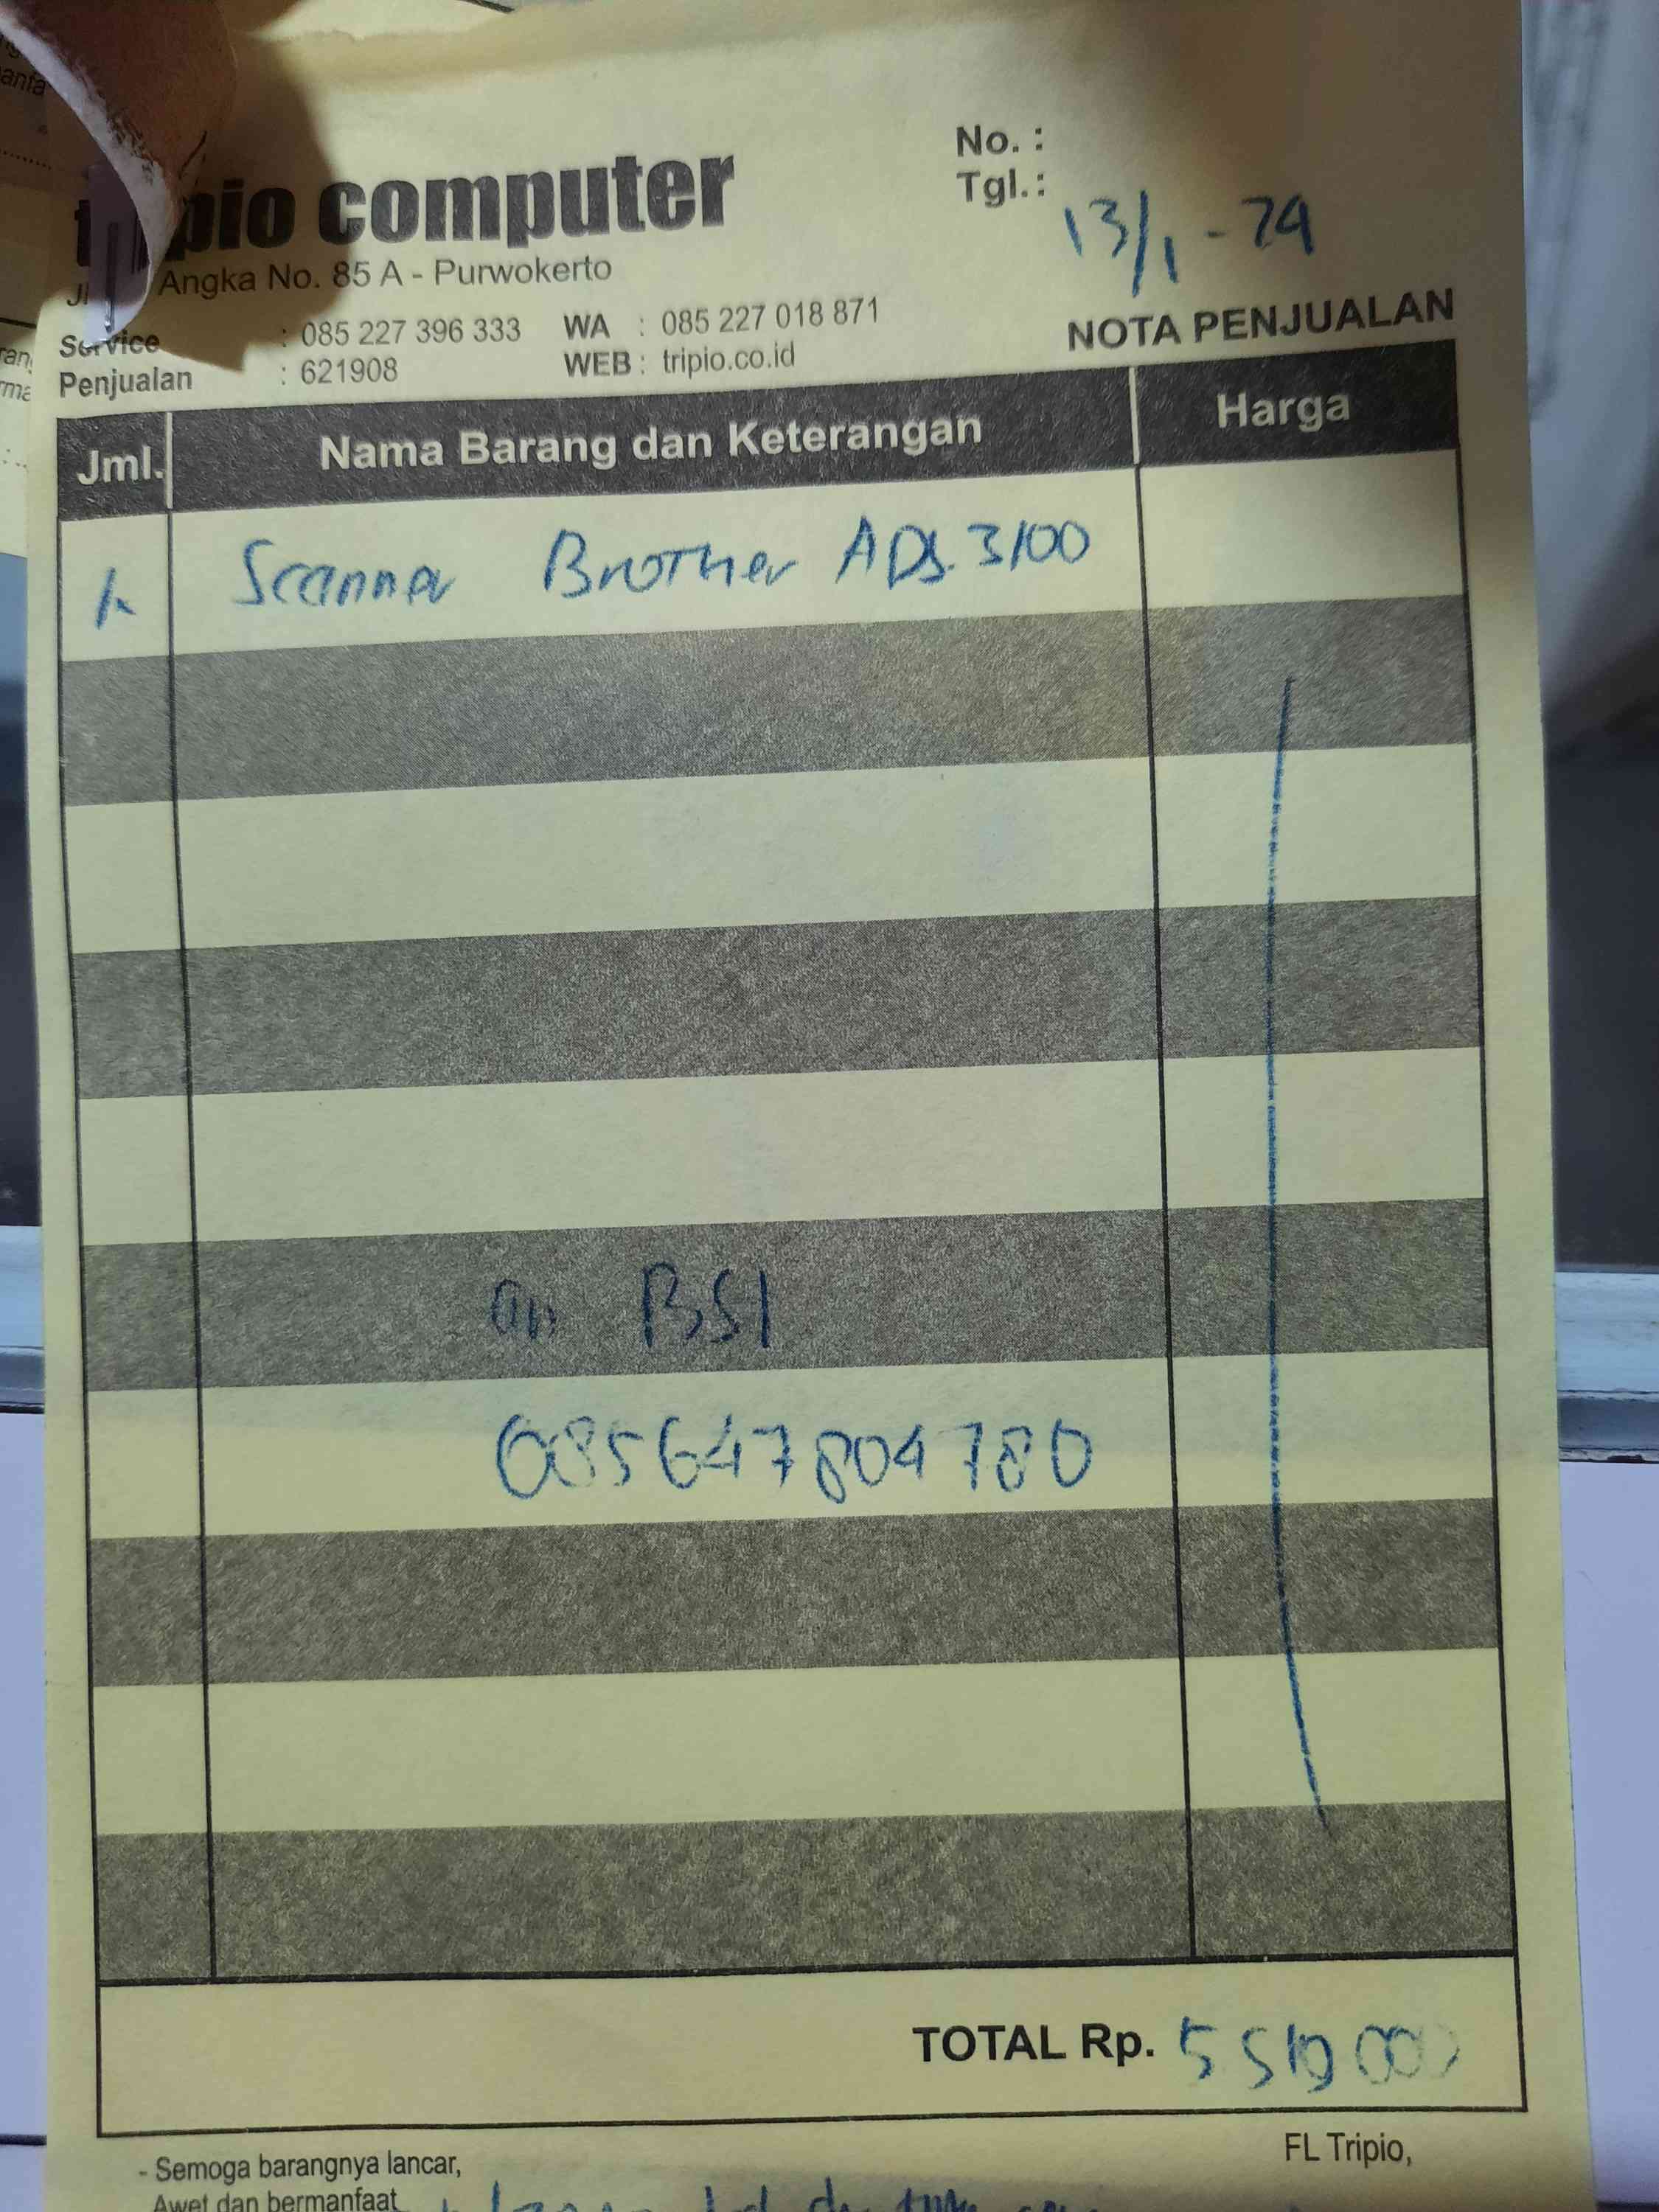 No. :
Tgl. : 13/1 - 24
pio computer
Angka No. 85 A - Purwokerto
Service : 085 227 396 333 WA : 085 227 018 871
Penjualan : 621908 WEB : tripio.co.id
NOTA PENJUALAN
Jml. Nama Barang dan Keterangan Harga
1 Scanner Brother ADS.3100
an BSI
085647804780
TOTAL Rp.
FL Tripio,
- Semoga barangnya lancar,
Awet dan bermanfaat